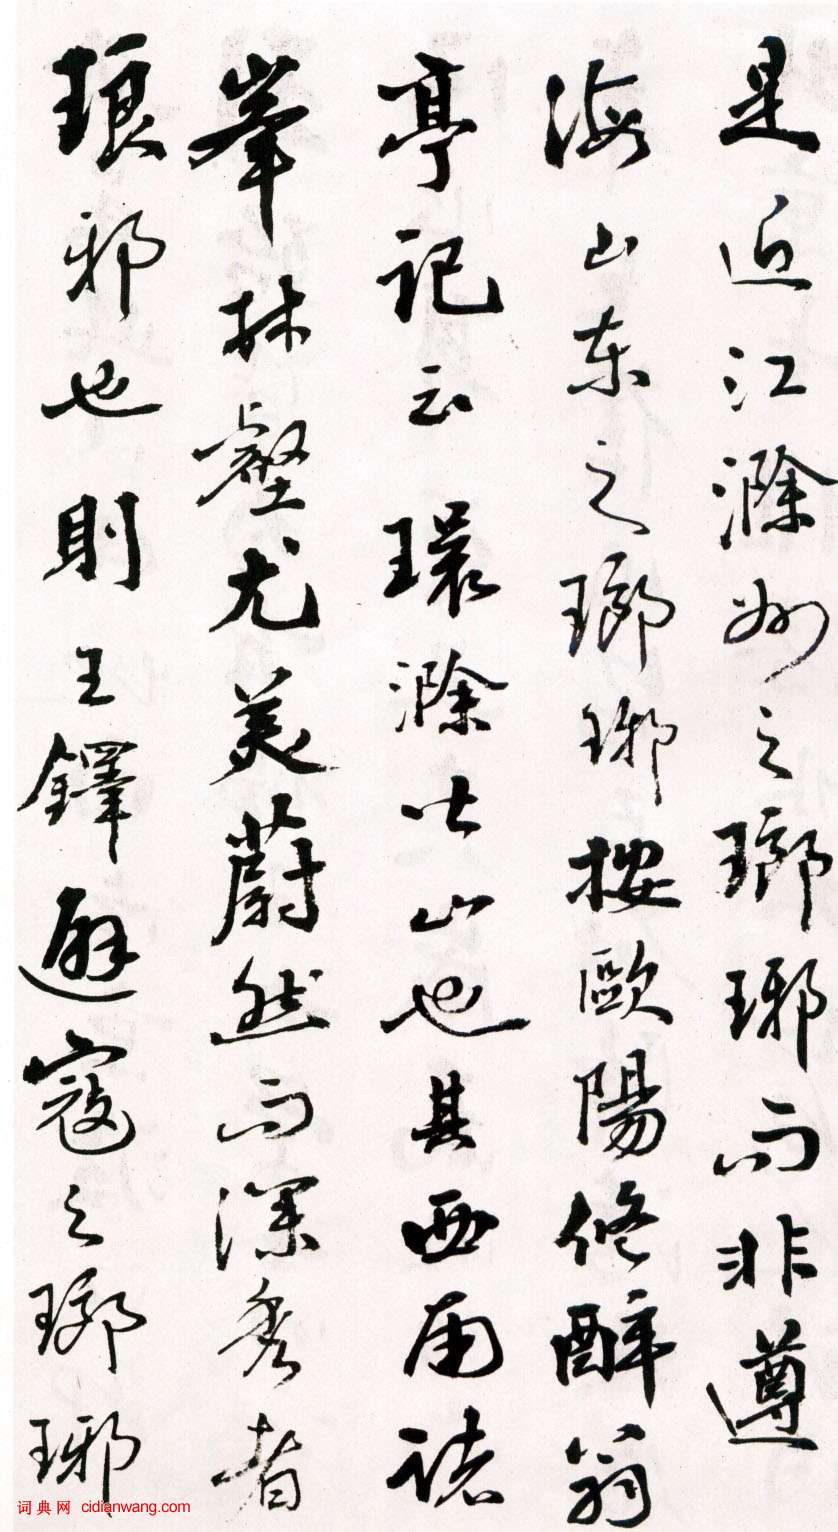 是近江滁州之瑯琊而非遵
海山东之瑯琊按歐陽修醉翁
亭記云環滁皆山也其西南诸
峯林壑尤美蔚然而深秀者
琅邪也則王鐸避寇之瑯琊
词典网 cidianwang.com